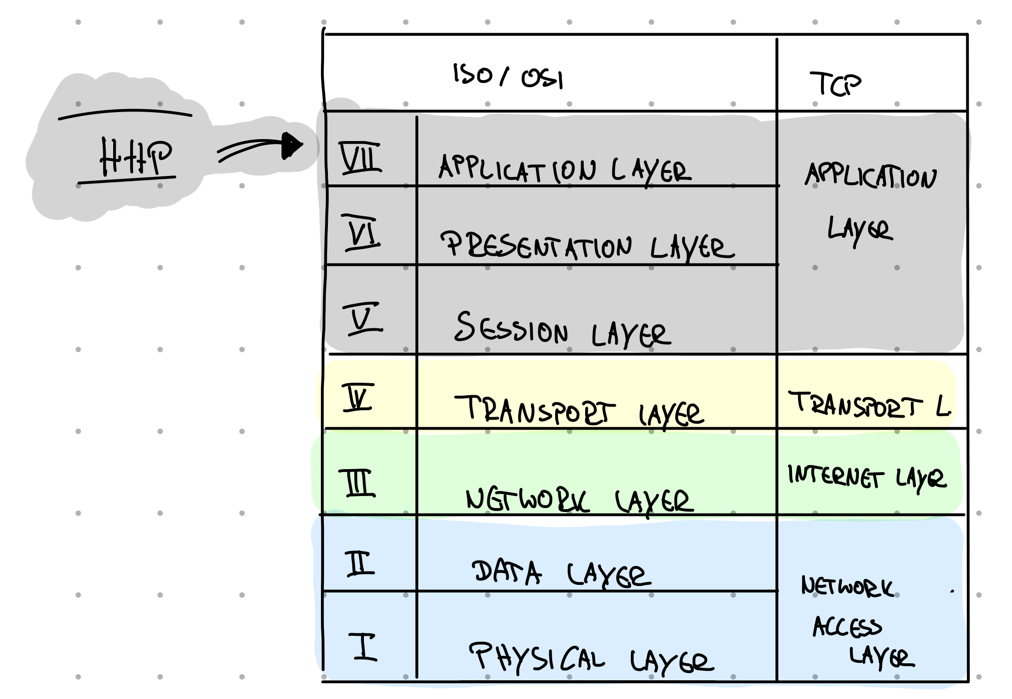 ISO / OSI
TCP
HTTP
VII
APPLICATION LAYER
APPLICATION
LAYER
VI
PRESENTATION LAYER
V
SESSION LAYER
IV
TRANSPORT LAYER
TRANSPORT L.
III
NETWORK LAYER
INTERNET LAYER
II
DATA LAYER
NETWORK
ACCESS
LAYER
I
PHYSICAL LAYER